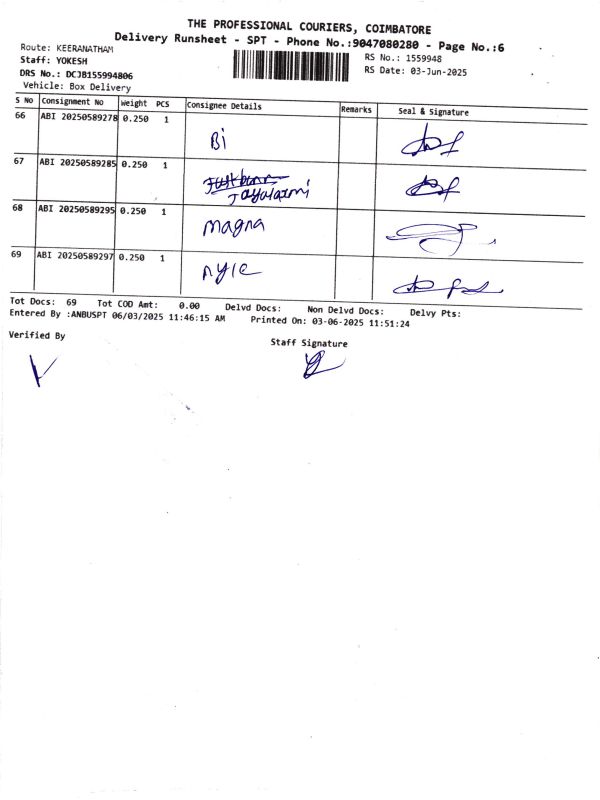 THE PROFESSIONAL COURIERS, COIMBATORE
Delivery Runsheet - SPT - Phone No.:9047080280 - Page No.:6
Route: KEERANATHAM
RS No.: 1559948
Staff: YOKESH
RS Date: 03-Jun-2025
DRS No.: DCJB155994806
Vehicle: Box Delivery
S No Consignment No Weight PCS Consignee Details Remarks Seal & Signature
66 ABI 20250589278 0.250 1 Bi
67 ABI 20250589285 0.250 1
Jayalaxmi
68 ABI 20250589295 0.250 1 magna
69 ABI 20250589297 0.250 1 nyle
Tot Docs: 69 Tot COD Amt: 0.00 Delvd Docs: Non Delvd Docs: Delvy Pts:
Entered By :ANBUSPT 06/03/2025 11:46:15 AM Printed On: 03-06-2025 11:51:24
Verified By
Staff Signature